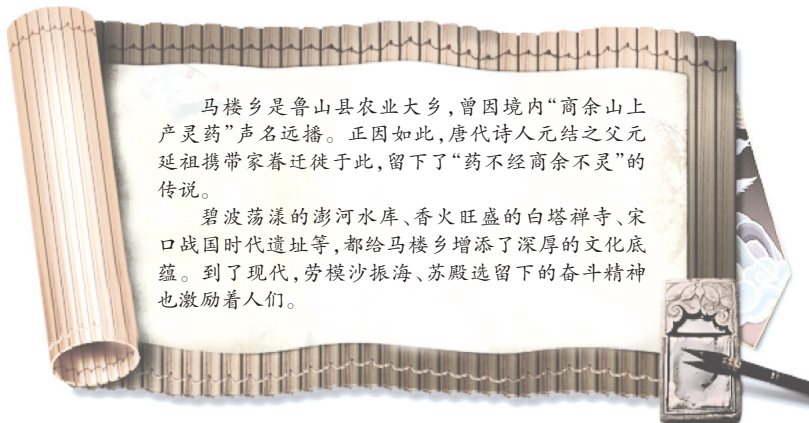 马楼乡是鲁山县农业大乡,曾因境内“商余山上
产灵药”声名远播。正因如此,唐代诗人元结之父元
延祖携带家眷迁徙于此,留下了“药不经商余不灵”的
传说。
碧波荡漾的澎河水库、香火旺盛的白塔禅寺、宋
口战国时代遗址等,都给马楼乡增添了深厚的文化底
蕴。到了现代,劳模沙振海、苏殿选留下的奋斗精神
也激励着人们。